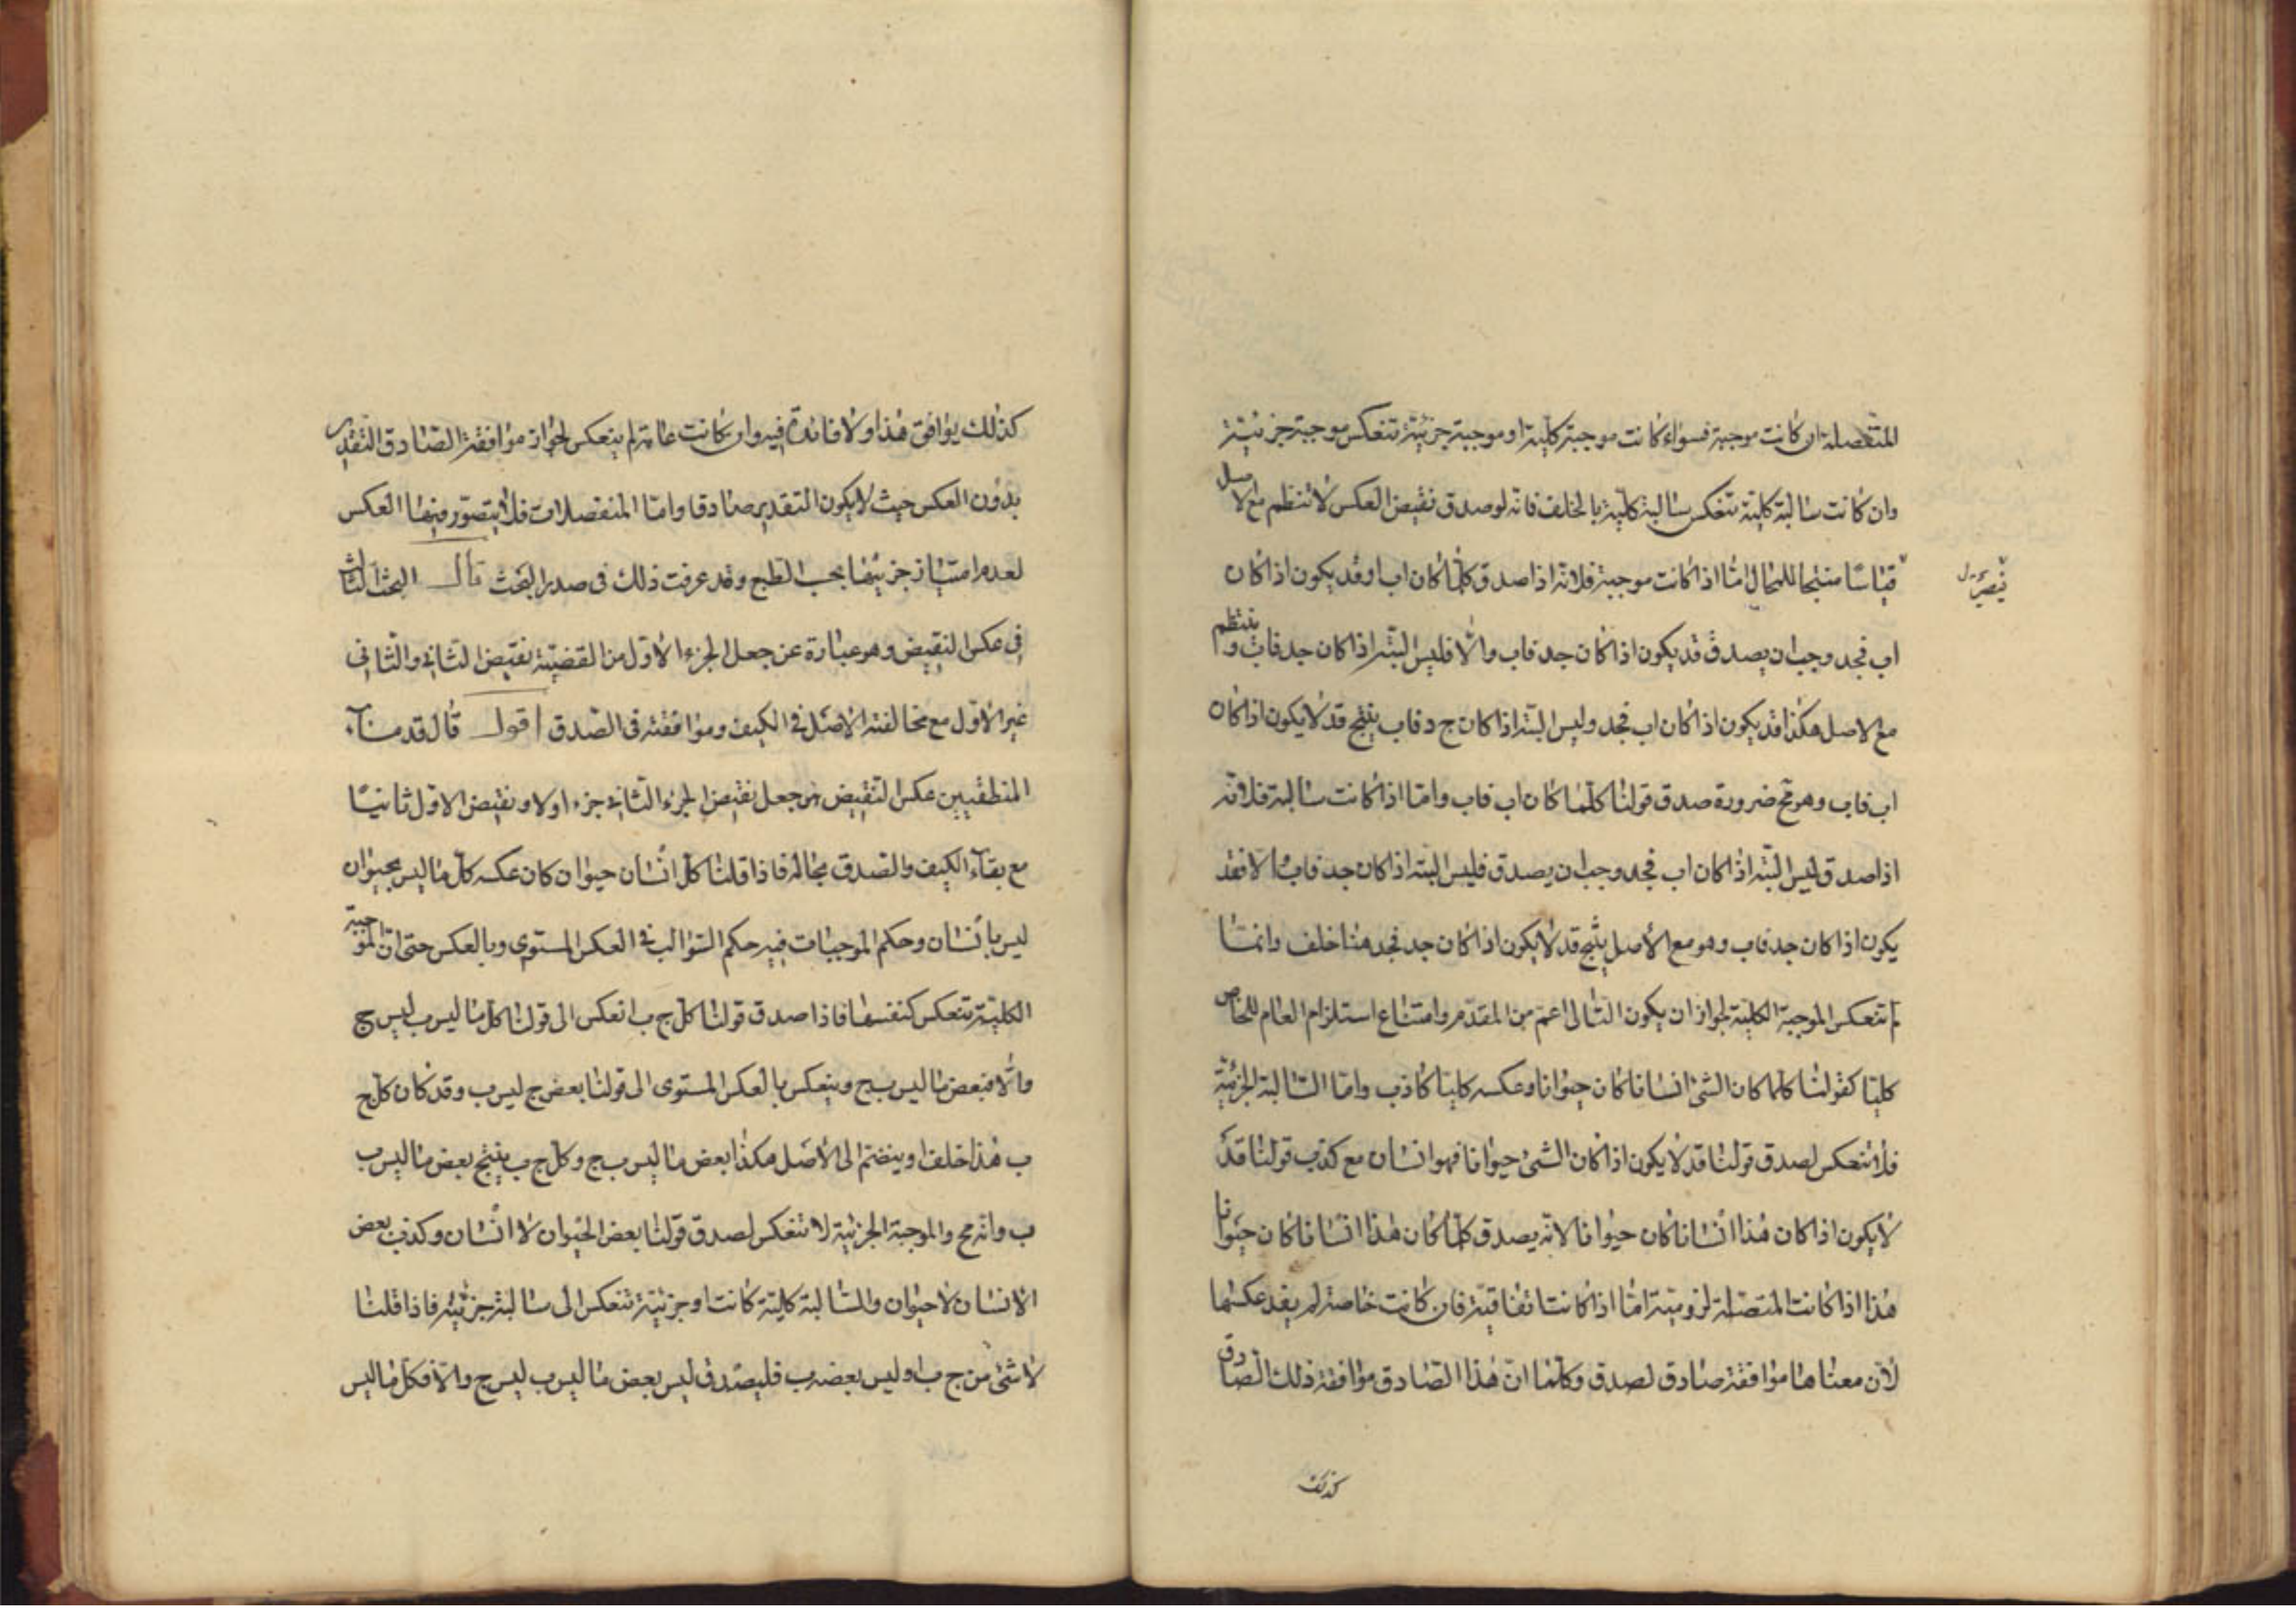 المتصلة ان كانت موجبة فسواء كانت موجبة كلية او موجبة جزئية تنعكس موجبة جزئية
وان كانت سالبة كلية تنعكس سالبة كلية بالخلف فانه لو صدق نقيض العكس لانتظم مع الاصل
قياسا منتجا للمحال امّا اذا كانت موجبة فلانه اذا صدق كلّما كان اب او قد يكون اذا كان
اب فجد وجب ان يصدق قد يكون اذا كان جد فاب والّا فليس البتّة اذا كان جد فاب وينتظم
مع الاصل هكذا قد يكون اذا كان اب فجد وليس البتّة اذا كان ج د فاب ينتج قد لا يكون اذا كان
اب فاب وهو مح ضرورة صدق قولنا كلّما كان اب فاب وامّا اذا كانت سالبة فلانّه
اذا صدق ليس البتّة اذا كان اب فجد وجب ان يصدق فليس البتّة اذا كان جد فاب والا فقد
يكون اذا كان جد فاب وهو مع الأصل ينتج قد لا يكون اذا كان جد فجد هذا خلف وانما
لم تنعكس الموجبة الكلية لجواز ان يكون التالى اعم من المقدّم وامتناع استلزام العام للخاص
كليّا كقولنا كلما كان الشئ انسانا كان حيوانا وعكسه كليّا كاذب وامّا السّالبة الجزئية
فلا تنعكس لصدق قولنا قد لا يكون اذا كان الشئ حيوانا فهو انسان مع كذب قولنا قد
لا يكون اذا كان هذا انسانا كان حيوانا لانّه يصدق كلّما كان هذا انسانا كان حيوانا
هذا اذا كانت المتصلة لزومية امّا اذا كانت اتفاقيّة فان كانت خاصة لم يفد عكسها
لأن معناها موافقة صادق لصدق وكلّما انّ هذا الصّادق موافقة ذلك الصّادق
كذلك
كذلك يوافق هذا ولا فائدة فيه وان كانت عامة لم ينعكس لجواز موافقة الصّادق التقدير
بدون العكس حيث لا يكون التقدير صادقا وامّا المنفصلات فلا يتصوّر فيها العكس
لعدم امتياز جزئيها بحسب الطبع وقد عرفت ذلك فى صدر البحث قال البحث الثالث
فى عكس النقيض وهو عبارة عن جعل الجزء الاول من القضيّة نقيض الثانى والثانى
عين الاول مع مخالفته الاصل فى الكيف وموافقته فى الصّدق اقول قال قدماء
المنطقيين عكس النقيض هو جعل نقيض الجزء الثانى جزء اولا ونقيض الاول ثانيًا
مع بقاء الكيف والصدق بحاله فاذا قلنا كلّ انسان حيوان كان عكسه كلّ ما ليس بحيوان
ليس بانسان وحكم الموجبات فيه حكم السّوالب فى العكس المستوى وبالعكس حتى انّ الموجبة
الكليّة تنعكس كنفسها فاذا صدق قولنا كلّ ج ب انعكس الى قولنا كلّ ما ليس ب ليس ج
والّا فبعض ما ليس ب ج وينعكس بالعكس المستوى الى قولنا بعض ج ليس ب وقد كان كلّ ج
ب هذا خلف او ينضمّ الى الأصل هكذا بعض ما ليس ب ج وكلّ ج ب ينتج بعض ما ليس ب
ب وانّه مح والموجبة الجزئية لا تنعكس لصدق قولنا بعض الحيوان لا انسان وكذب بعض
الانسان لا حيوان والسّالبة كلية كانت او جزئيّة تنعكس الى سالبة جزئيّة فاذا قلنا
لا شئ من ج ب او ليس بعضه ب فليصدق ليس بعض ما ليس ب ليس ج والّا فكل ما ليس